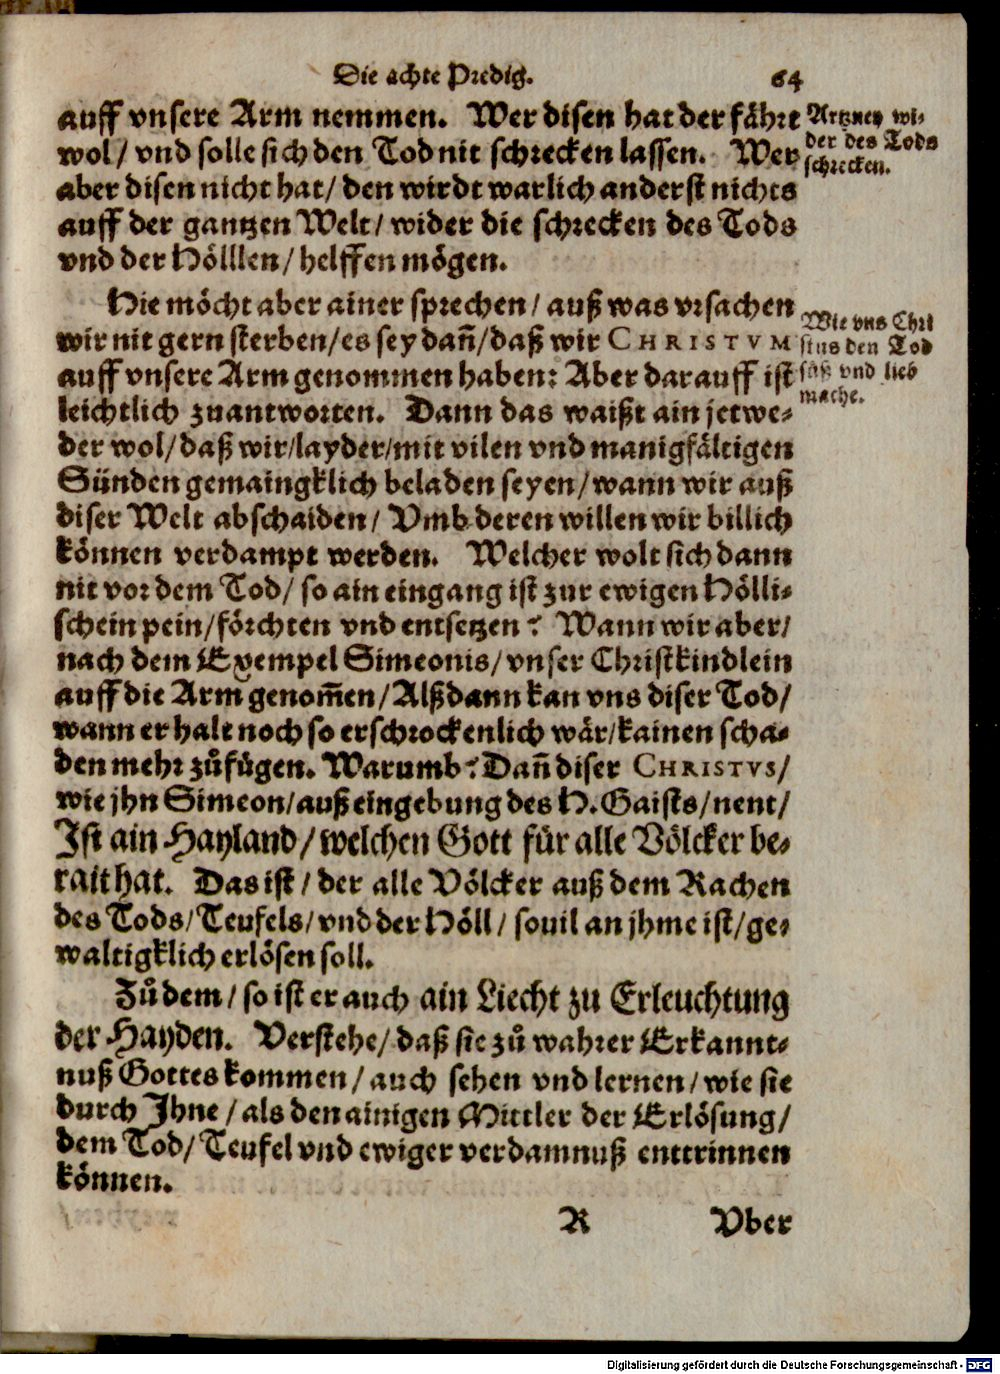 Die achte Predig. 64
auff vnsere Arm nemmen. Wer disen hat der fährt
wol/ vnd solle sich den Tod nit schrecken lassen. Wer
aber disen nicht hat/ den wirdt warlich anderst nichts
auff der gantzen Welt/ wider die schrecken des Tods
vnd der Hölllen/ helffen mögen.
Artzney wi-
der des Tods
schrecken.
Hie möcht aber ainer sprechen/ auß was vrsachen
wir nit gern sterben/ es sey dañ/ daß wir CHRISTVM
auff vnsere Arm genommen haben? Aber darauff ist
leichtlich zuantworten. Dann das waißt ain jetwe-
der wol/ daß wir/ layder/ mit vilen vnd manigfältigen
Sünden gemaingklich beladen seyen/ wann wir auß
diser Welt abschaiden/ Vmb deren willen wir billich
können verdampt werden. Welcher wolt sich dann
nit vor dem Tod/ so ain eingang ist zur ewigen Hölli-
schein pein/ förchten vnd entsetzen? Wann wir aber/
nach dem Exempel Simeonis/ vnser Christkindlein
auff die Arm genom̃en/ Alßdann kan vns diser Tod/
wann er halt noch so erschrockenlich wär/ kainen scha-
den mehr zůfügen. Warumb? Dañ diser CHRISTVS/
wie jhn Simeon/ auß eingebung des H. Gaists/ nent/
Ist ain Hayland/ welchen Gott für alle Völcker be-
rait hat. Das ist/ der alle Völcker auß dem Rachen
des Tods/ Teufels/ vnd der Höll/ souil an jhme ist/ ge-
waltigklich erlösen soll.
Wie vns Chri
stus den Tod
süß vnd lieb
mache.
Zů dem/ so ist er auch ain Liecht zu Erleuchtung
der Hayden. Verstehe/ daß sie zů wahrer Erkannt-
nuß Gottes kommen/ auch sehen vnd lernen/ wie sie
durch Jhne/ als den ainigen Mittler der Erlösung/
dem Tod/ Teufel vnd ewiger verdamnuß enttrinnen
können.
R Vber
Digitalisierung gefördert durch die Deutsche Forschungsgemeinschaft - DFG